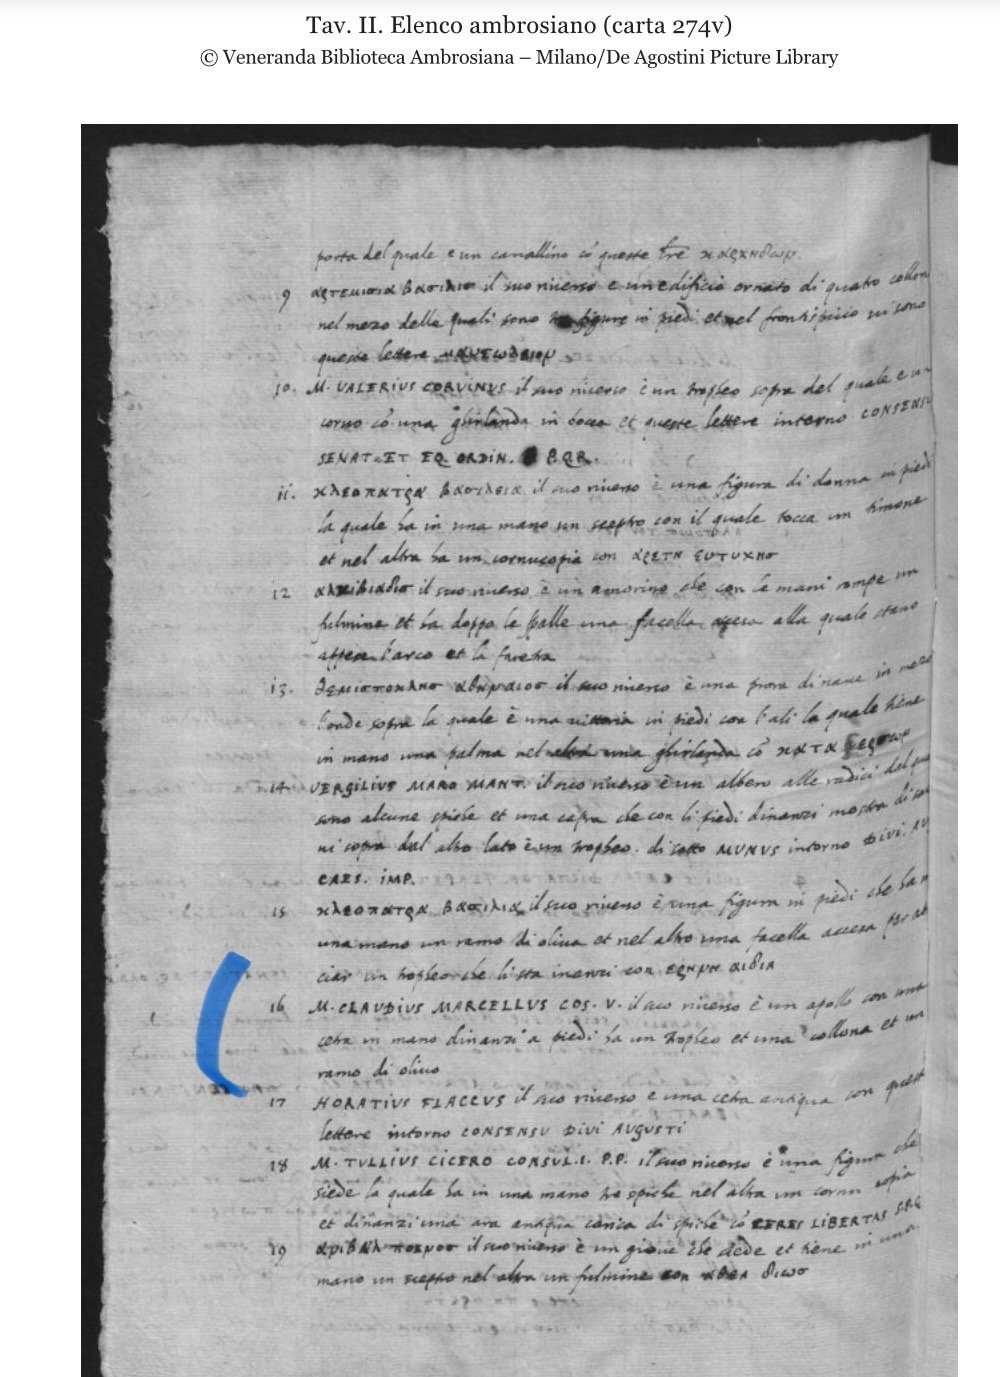 Tav. II. Elenco ambrosiano (carta 274v)
© Veneranda Biblioteca Ambrosiana – Milano/De Agostini Picture Library
porta del quale e un cavallino cō queste lre
9 βασιλισ il suo riverso e un edificio ornato di quatro
nel mezo delle quali sono figure in piedi et nel frontispicio vi sono
queste lettere
10. M. VALERIUS CORVINUS il suo riverso è un tropheo sopra del quale e
corvo cō una ghirlanda in bocca et queste lettere intorno
SENAT. ET EQ. ORDIN. P.Q.R.
11. κλεοπατρα βασιλεια il suo riverso è una figura di donna in piedi
la quale ha in una mano un sceptro con il quale tocca un timone
et nel altra ha un cornucopia con
12 il suo riverso è un amorino che con le mani rompe un
fulmine et ha doppo le spalle una facella accesa alla quale stano
appesa l'arco et la faretra
13. il suo riverso è una prora di nave in mezo
l'onde sopra la quale è una vittoria in piedi con l'ali la quale tiene
in mano una palma nel altra una ghirlanda cō
14. VERGILIUS MARO MANT. il suo riverso è un albero alle radici del
sono alcune spiche et una capra che con li piedi dinanzi mostra di
sopra dal altro lato è un tropheo. di sotto MUNUS intorno DIVI.
CAES. IMP.
15 κλεοπατρα βασιλια il suo riverso è una figura in piedi che ha
una mano un ramo di oliva et nel altro una facella accesa per
ciar un tropheo che li sta inanzi con
16 M. CLAUDIUS MARCELLUS COS. V. il suo riverso è un apollo con una
cetra in mano dinanzi a piedi ha un tropheo et una collona et un
ramo di olivo
17 HORATIUS FLACCUS il suo riverso è una cetra antiqua con queste
lettere intorno CONSENSU DIVI AUGUSTI
18 M. TULLIUS CICERO CONSUL. P.P. il suo riverso è una figura che
siede la quale ha in una mano tre spiche nel altra un cornu copia
et dinanzi una ara antiqua carica di spiche cō CERES LIBERTAS
19 il suo riverso è un giove che et tiene in una
mano un sceptro nel altra un fulmine con